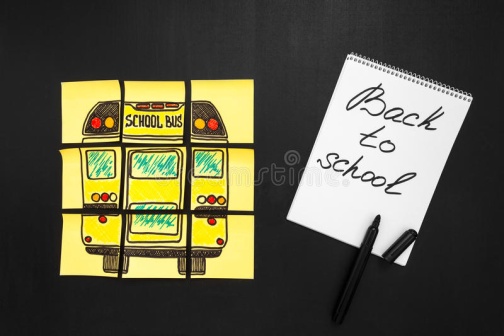 SCHOOL BUS
Back
to
school
dreamstime